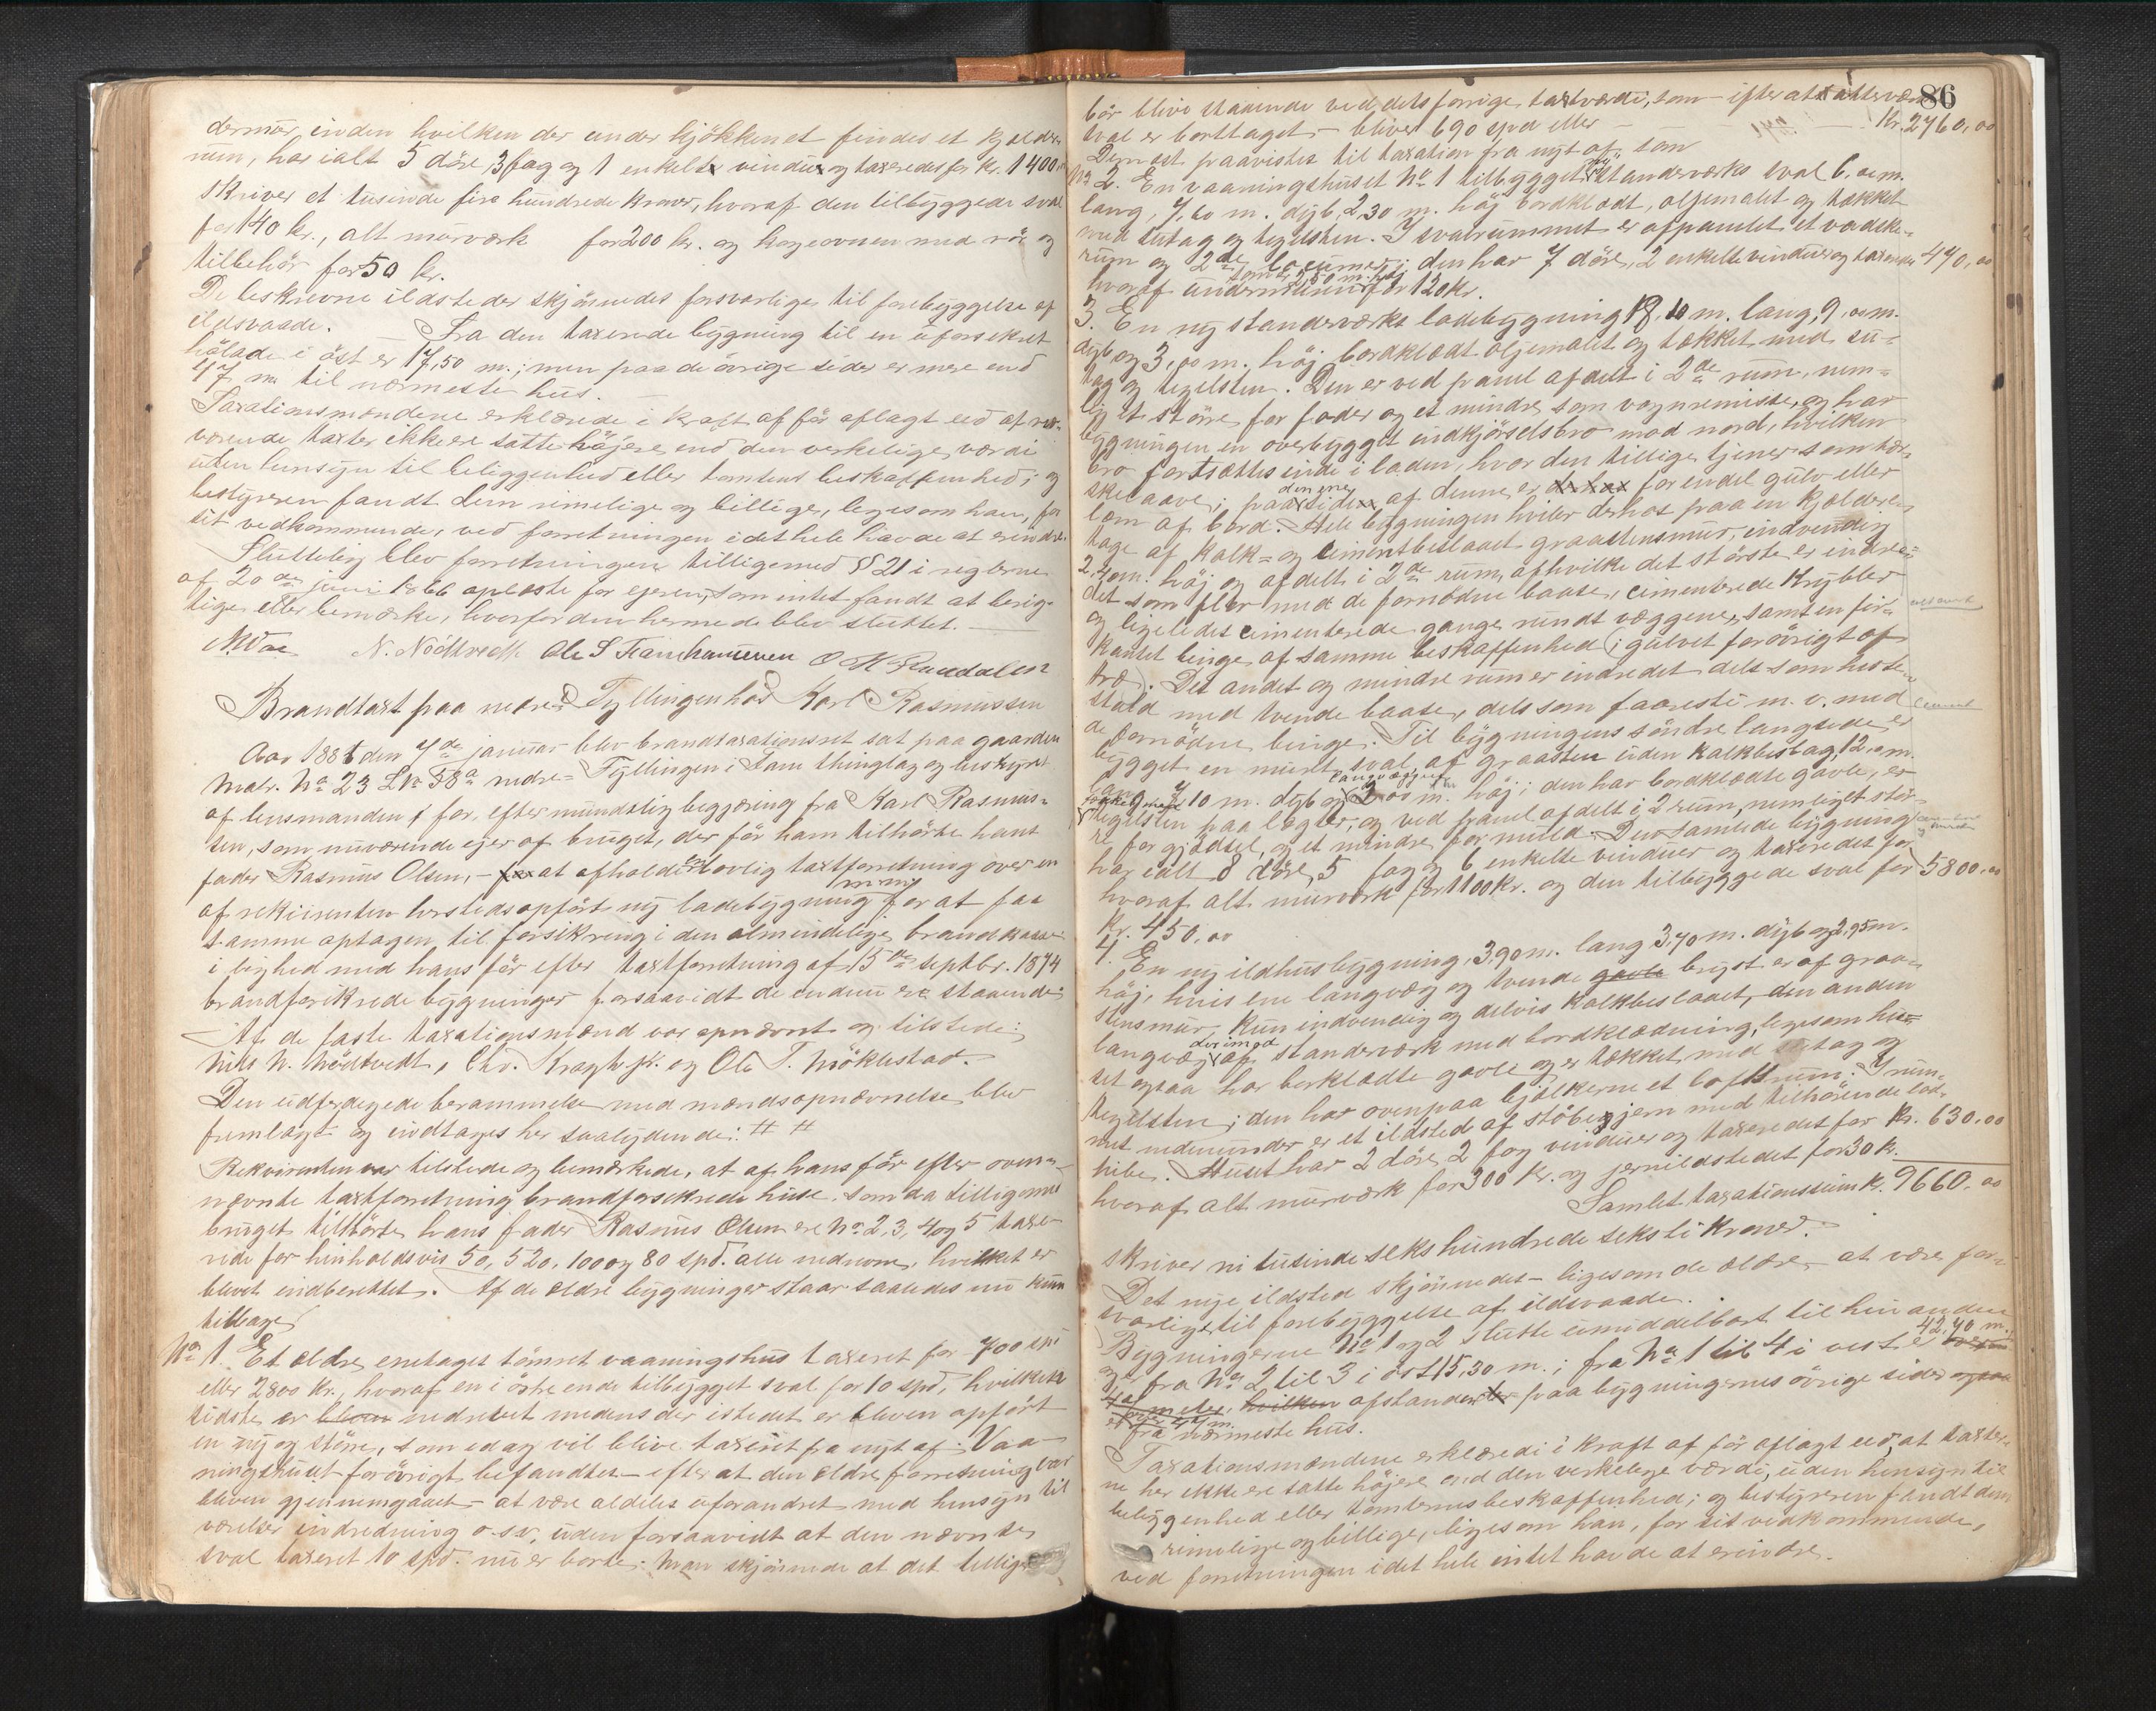 dermur, inden hvilken der under kjökkenet findes et kjelder-
rum, har ialt 5 döre, 3 fag og 1 enkelt vindu og taxeredes for kr. 1400,
skriver et tusinde fire hundrede kroner, hvoraf den tilbyggede sval
for 140 kr., alt murværk for 200 kr. og kogeovnen med rör og
tilbehör for 50 kr.
De beskrevne ildsteder skjönnedes forsvarlige til forebyggelse af
ildsvaade. Fra den taxerede bygning til en uforsikret
hölade i öst er 17,50 m.; men paa de övrige sider er mere end
47 m. til nærmeste hus.
Taxationsmændene erklærede i kraft af för aflagt eed at nær-
værende taxter ikke ere satte höjere end den verkelige værdi
uden hensyn til beliggenhed eller tomtens beskaffenhed; og
bestyreren fandt dem rimelige og billige, ligesom han, for
sit vedkommende, ved forretningen i det hele havde at erindre.
Slutteligt blev forretningen tilligemed § 21 i reglerne
af 20de juni 1866 oplæste for ejeren, som intet fandt at berig-
tige eller bemærke, hvorfor den hermed blev sluttet.
N. Nödtvedt Ole S O K
Brandtaxt paa nedre Tyllingen hos Karl Rasmussen
Aar 1881 den 7de januar blev brandtaxationsret sat paa gaarden
Matr. No 23 LNo 38a nedre Tyllingen i Fane thinglag og bestyret
af lensmanden for, efter mundtlig begjæring fra Karl Rasmus-
sen, som nuværende ejer af bruget, der för ham tilhörte hans
fader Rasmus Olsen, at afholde lovlig taxtforretning over en
af rekvirenten hersteds opfört ny ladebygning m. m. for at faa
samme optagen til forsikring i den almindelige brandkasse
i lighed med hans för efter taxtforretning af 15de septbr. 1874
brandforsikrede bygninger forsaavidt de endnu ere staaende.
Af de faste taxationsmænd var opnævnt og tilstede:
Nils N. Nödtvedt, Chr. Kragh jr. og Ole T. Möklestad.
Den udferdigede berammelse med mændsopnævnelse blev
fremlagt og indtages her saalydende: # #
Rekvirenten var tilstede og bemærkede, at af hans för efter oven-
nævnte taxtforretning brandforsikrede huse, som da tilligemed
bruget tilhörte hans fader Rasmus Olsen ere No 2, 3, 4 og 5 taxe-
rede for henholdsvis 50, 520, 100 og 80 spd. alle nedrevne, hvilket er
blevet indberettet. Af de ældre bygninger staar saaledes nu kun
tilbage
No 1. Et ældre, enetages tömret vaaningshus taxeret for 700 spd
eller 2800 kr., hvoraf en i östre ende tilbygget sval for 10 spd, hvilken
sidste er nedrevet medens der istedet er bleven opfört
en ny og större, som idag vil blive taxeret fra nyt af. Vaa-
ningshuset forövrigt befandtes – efter at den ældre forretning var
bleven gjennemgaaet – at være aldeles uforandret med hensyn til
værelser indredning o. s. v. uden forsaavidt at den nævnte
sval taxeret 10 spd. nu er borte. Man skjönnede at det tillige
86
bör blive staaende ved dets forrige taxtværdi, som efter at
sval er borttaget – bliver 690 spd eller – Kr. 2760,00
Dernæst paavistes til taxation fra nyt af som
No 2. En vaaningshuset No 1 tilbygget ny standerværks sval 6,00 m.
lang, 7,60 m. dyb, 2,30 m. höj bordklædt, oljemalet og tækket
med sutag og tegelsten. I svalrummet er afpanelet et vadske-
rum og 2de locumer; den har 7 döre, 2 enkelte vinduer og taxeredes 470,00
hvoraf undermuren for 120 kr.
3. En ny standerværks ladebygning 18,10 m. lang, 9,00 m.
dyb og 3,00 m. höj, bordklædt oljemalet og tækket med su-
tag og tegelsten. Den er ved panel afdelt i 2de rum, nem-
lig et större for foder og et mindre som vognremisse, og har
bygningen en overbygget indkjörselsbro mod nord, hvilken
bro fortsættes inde i laden, hvor den tillige tjener som tær-
skelaave; paa den ene side af denne er forendel gulv eller
lem af bord. Hele bygningen hviler derhos paa en kjelder-
tage af kalk- og cementbeslaaet graastensmur, indvendig
2,40 m. höj og afdelt i 2de rum, af hvilke det störste er indre-
det som flör med de fornödne baase, cimenterede krybber
og ligeledes cimenterede gange rundt væggene, samt en fir-
kantet binge af samme beskaffenhed (i gulvet forövrigt af
træ). Det andet og mindre rum er indredet dels som heste-
stald med tvende baase, dels som faaresti m. v. med
de fornödne binger. Til bygningens söndre langside er
bygget en muret sval af graasten uden kalkbeslag, 12,00 m.
lang, 7,10 m. dyb og langvæggen 2,00 m. höj; den har bordklædte gavle, er
tækket med tegelsten paa lægter, og ved panel afdelt i 2 rum, nemlig et stör-
re for gjödsel, og et mindre for muld. Den samlede bygning
har ialt 8 döre, 5 fag og 6 enkelte vinduer og taxeredes for 5800,00
hvoraf alt murværk for 1100 kr. og den tilbyggede sval for
Kr. 450,00
4. En ny ildhusbygning, 3,90 m. lang 3,70 m. dyb og 2,95 m.
höj, hvis ene langvæg og tvende gavle bryst er af graa-
stensmur, kun indvendig og delvis kalkbeslaaet, den anden
langvæg derimod af standerværk med bordklædning, ligesom hu-
set ogsaa har bordklædte gavle og er tækket med sutag og
tegelsten; den har ovenpaa bjælkerne et loftsrum. I rum-
met nedenunder er et ildsted af stöbejern med tilhörende
pibe. Huset har 2 döre 2 fag vinduer og taxeredes for kr. 630,00
hvoraf alt murværk for 300 kr. og jernildstedet for 30 k.
Samlet taxationssum k. 9660,00
skriver ni tusinde seks hundrede seksti kroner.
Det nye ildsted skjönnedes – ligesom de ældre, at være for-
svarligt til forebyggelse af ildsvaade.
Bygningerne No 1 og 2 slutte umiddelbart til hinanden
og er fra No 2 til 3 i öst 15,30 m.; fra No 1 til 4 i vest 42,70 m.
afstanden paa bygningernes övrige sider
er over 47 m.
fra nærmeste hus.
Taxationsmændene erklærede i kraft af för aflagt eed, at taxter-
ne her ikke ere satte höjere end den verkelige værdi, uden hensyn til
beliggenhed eller tomternes beskaffenhed; og bestyreren fandt dem
rimelige og billige, ligesom han, for sit vedkommende,
ved forretningen i det hele intet havde at erindre.